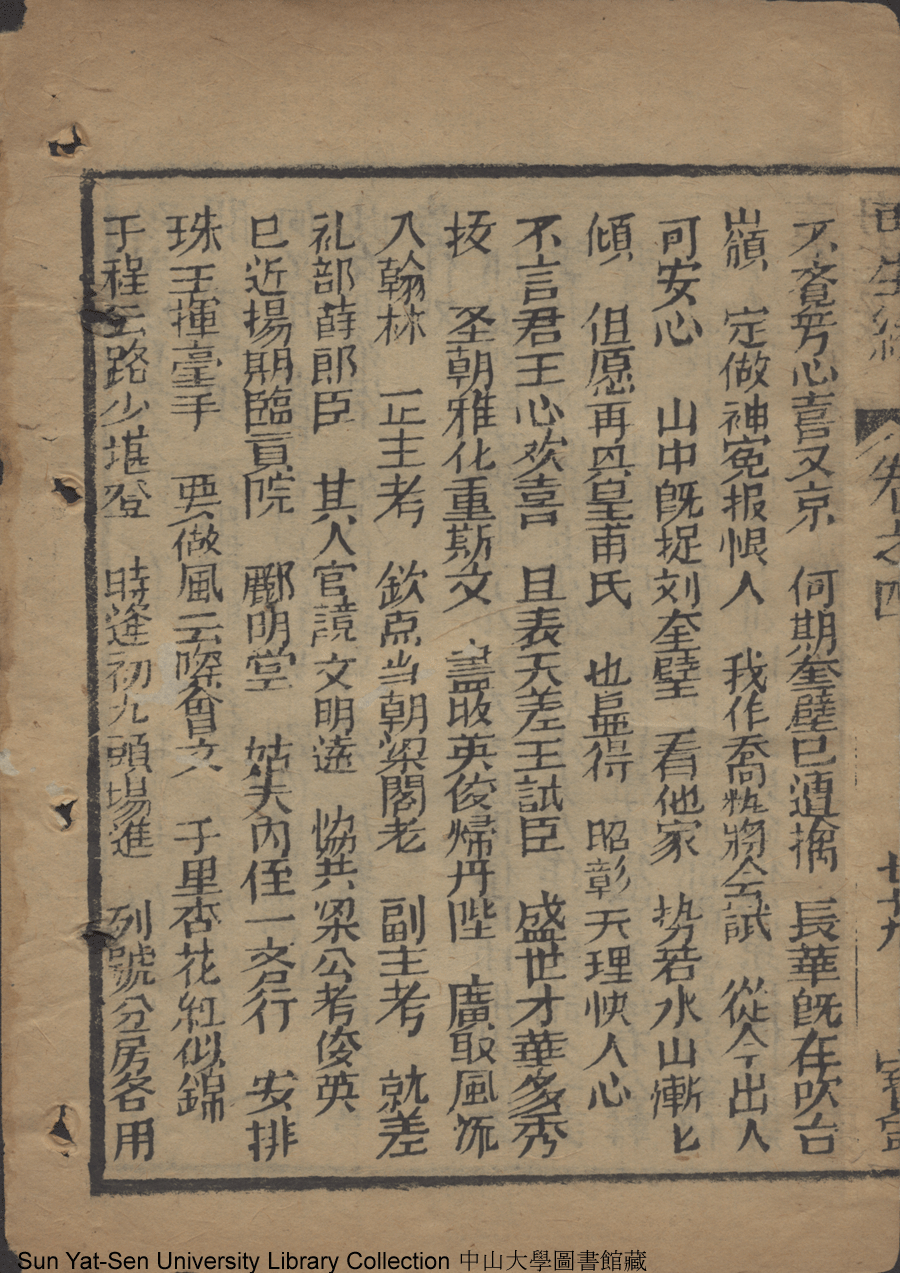 再生緣 卷之四 廿九
不覚芳心喜又京 何期奎壁已遭擒 長華既在吹台
嶺 定做神冤报恨人 我作喬粧將会試 從今出入
可安心 山中既捉刘奎壁 看他家 势若水山漸匕
傾 但愿再興皇甫氏 也盁得 昭彰天理快人心
不言君王心欢喜 且表天差王試臣 盛世才華多秀
拔 圣朝雅化重斯文 盡收英俊帰丹陛 廣取風流
入翰林 一正主考 欽点当朝梁閣老 副主考 就差
礼部薛郎臣 其人官諒文明遠 協共梁公考俊英
已近揚期臨貢院 酈明堂 姑夫內侄一斉行 安排
珠玉揮毫手 要做風云際會文 千里杏花紅似錦
于程云路少堪登 時逢初九頭場進 列號分房各用
Sun Yat-Sen University Library Collection 中山大學圖書館藏